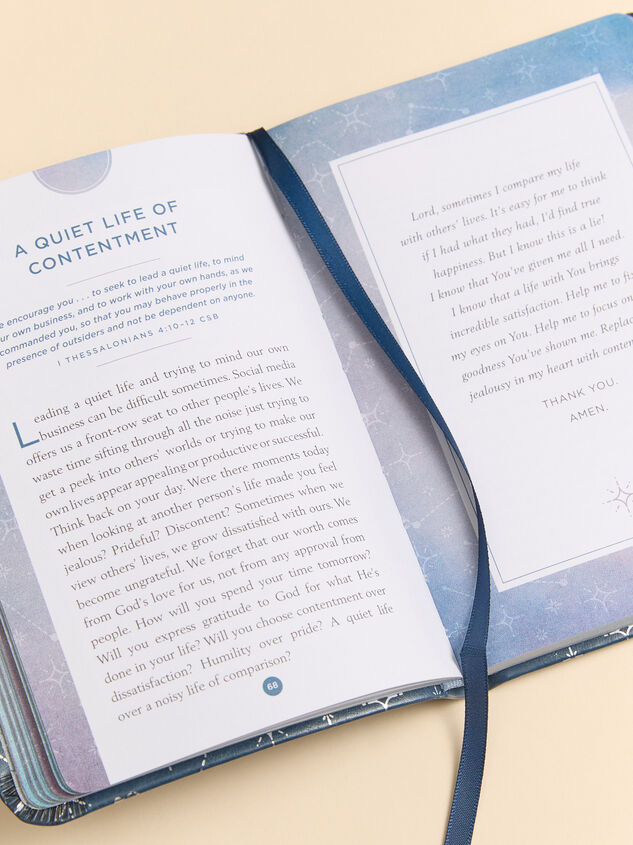 A QUIET LIFE OF
CONTENTMENT
e encourage you . . . to seek to lead a quiet life, to mind
ur own business, and to work with your own hands, as we
commanded you, so that you may behave properly in the
presence of outsiders and not be dependent on anyone.
1 THESSALONIANS 4:10-12 CSB
Leading a quiet life and trying to mind our own
business can be difficult sometimes. Social media
offers us a front-row seat to other people's lives. We
waste time sifting through all the noise just trying to
get a peek into others' worlds or trying to make our
own lives appear appealing or productive or successful.
Think back on your day. Were there moments today
when looking at another person's life made you feel
jealous? Prideful? Discontent? Sometimes when we
view others' lives, we grow dissatisfied with ours. We
become ungrateful. We forget that our worth comes
from God's love for us, not from any approval from
people. How will you spend your time tomorrow?
Will you express gratitude to God for what He's
done in your life? Will you choose contentment over
dissatisfaction? Humility over pride? A quiet life
over a noisy life of comparison?
68
Lord, sometimes I compare my life
with others' lives. It's easy for me to think
if I had what they had, I'd find true
happiness. But I know this is a lie!
I know that You've given me all I need.
I know that a life with You brings
incredible satisfaction. Help me to fi
my eyes on You. Help me to focus on
goodness You've shown me. Replac
jealousy in my heart with conten
THANK YOU.
AMEN.